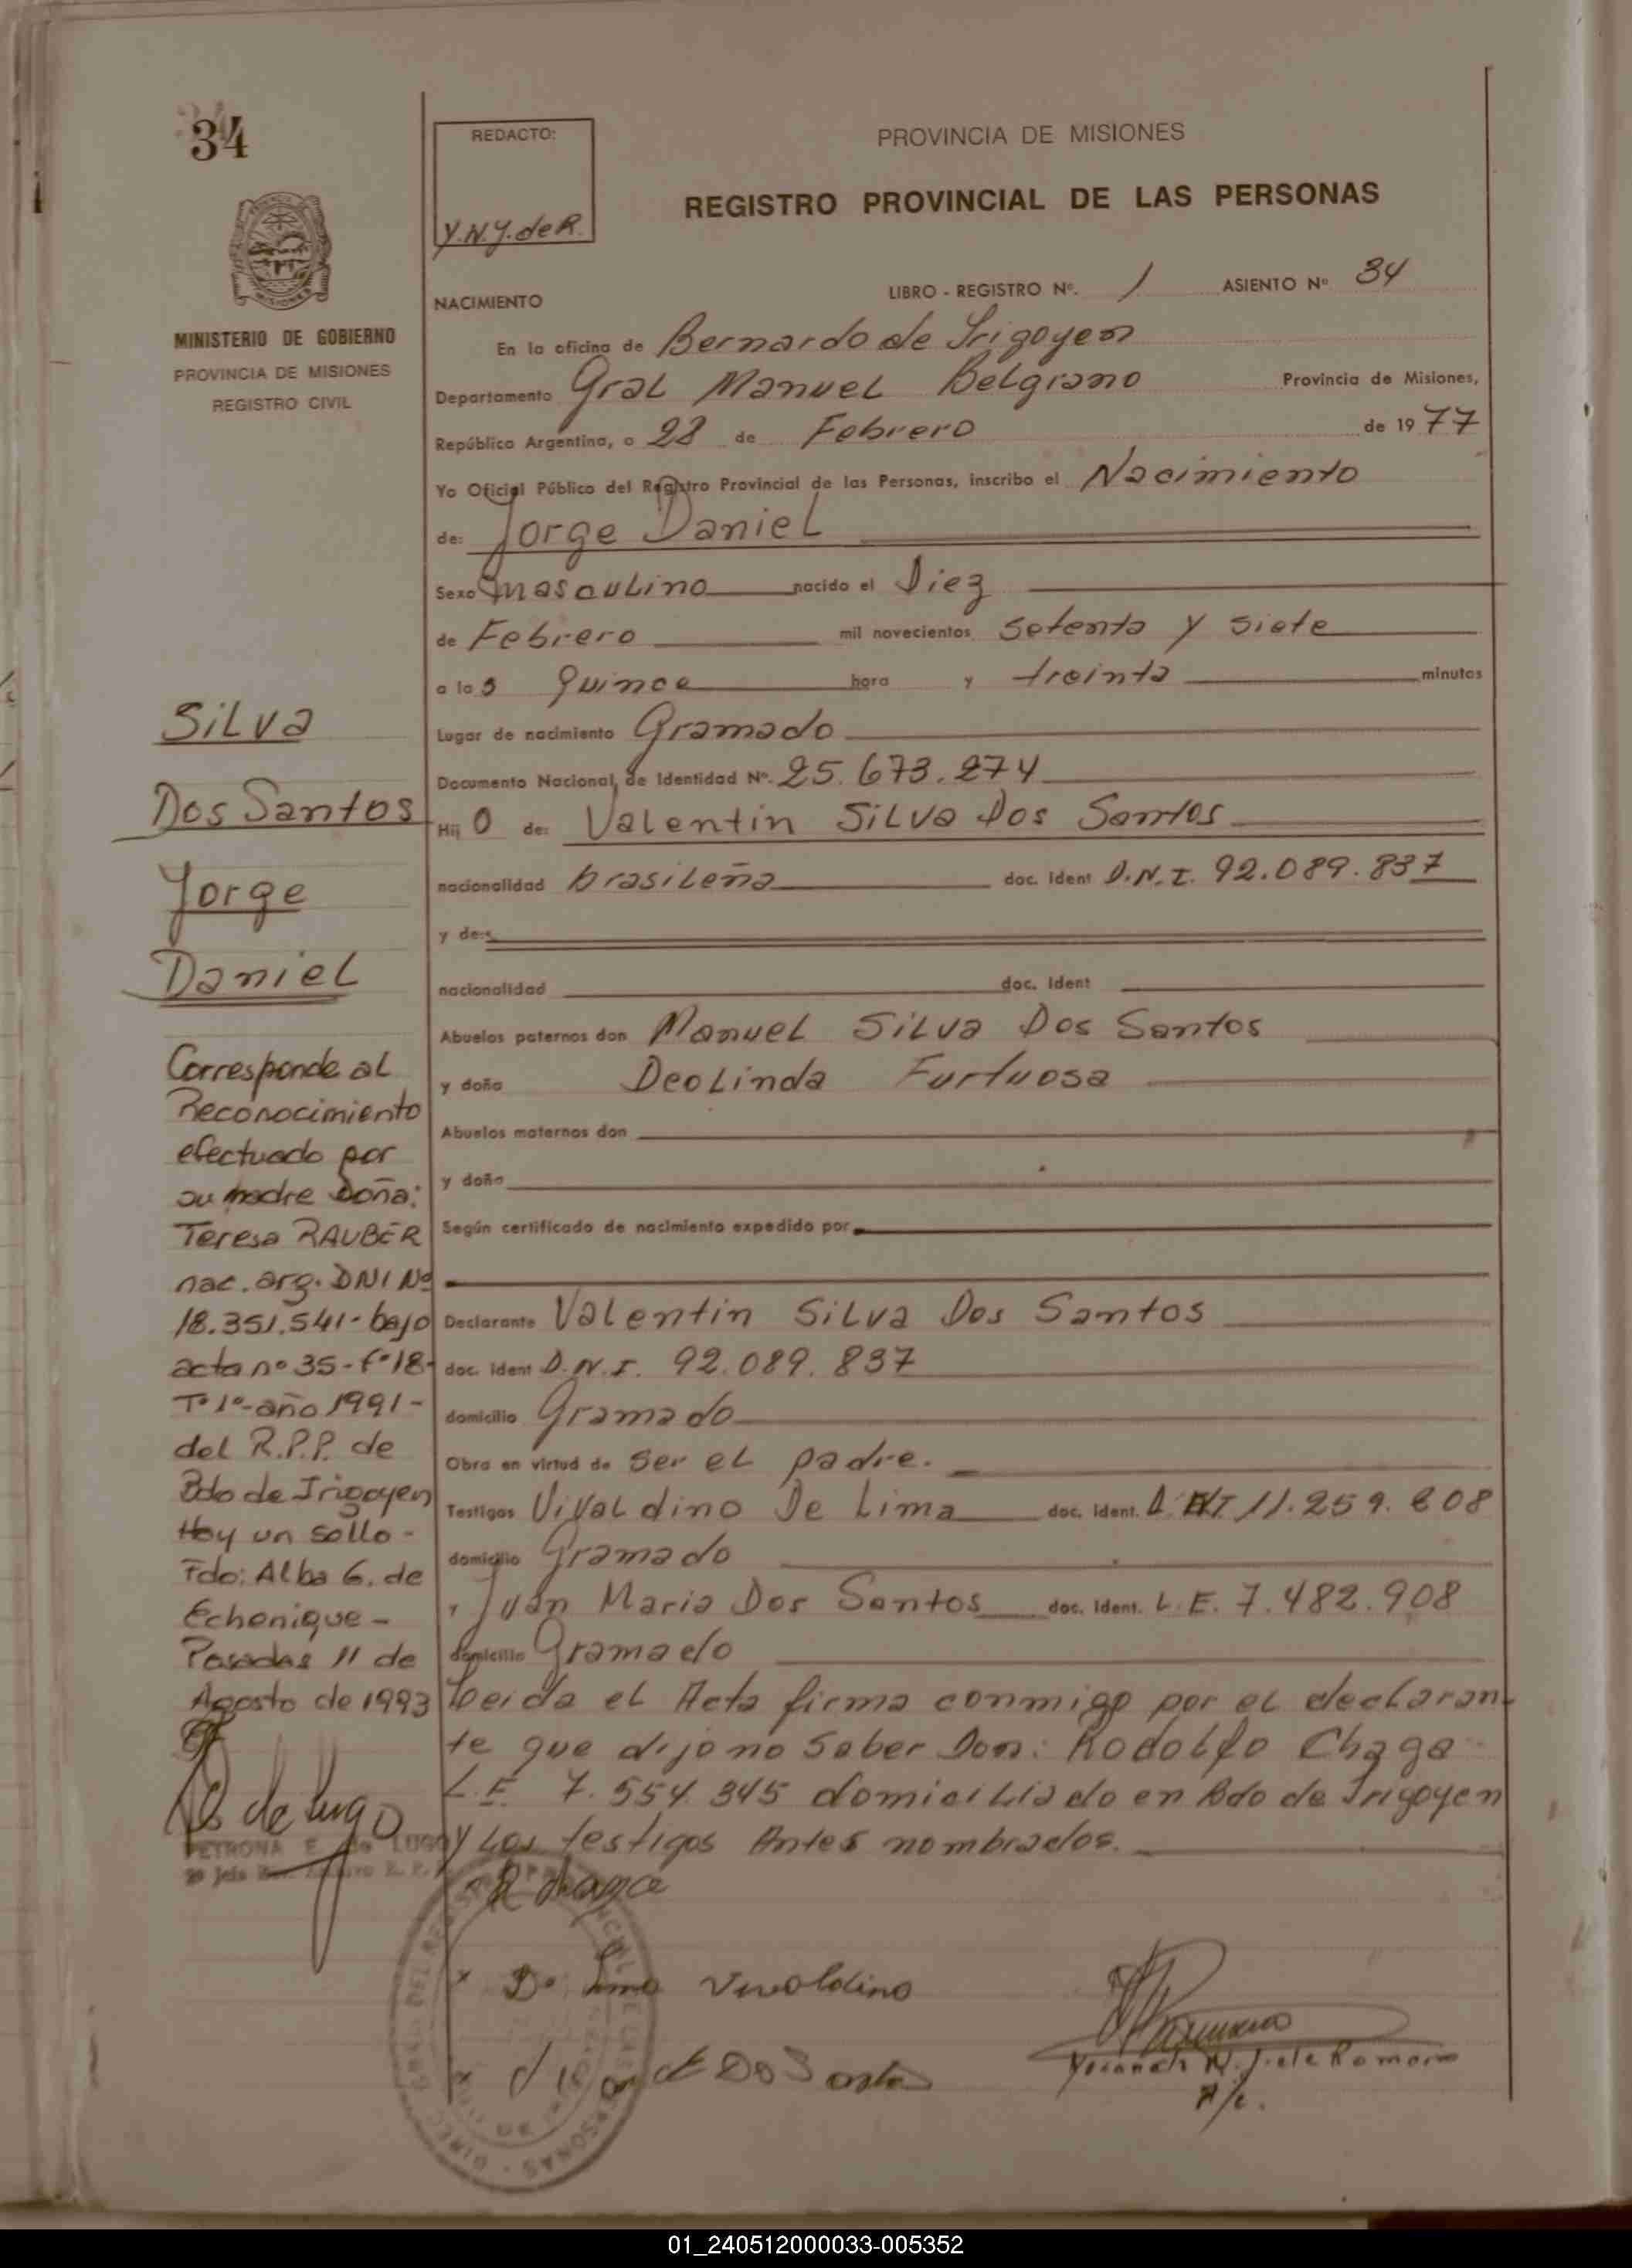 34
MINISTERIO DE GOBIERNO
PROVINCIA DE MISIONES
REGISTRO CIVIL
Silva
Dos Santos
Jorge
Daniel
Corresponde al
Reconocimiento
efectuado por
su madre Doña:
Teresa RAUBER
nac. arg. DNI Nº
18.351.541- bajo
acta nº 35 - fº 18-
Tº 1º- año 1991 -
del R.P.P. de
Bdo de Irigoyen
Hay un sello -
Fdo: Alba G. de
Echenique -
Posadas 11 de
Agosto de 1993
de Lugo
PETRONA E. de LUGO
REDACTO:
Y.N.Y. de R.
PROVINCIA DE MISIONES
REGISTRO PROVINCIAL DE LAS PERSONAS
NACIMIENTO LIBRO - REGISTRO Nº. 1 ASIENTO Nº 34
En la oficina de Bernardo de Irigoyen
Departamento Gral Manuel Belgrano Provincia de Misiones,
República Argentina, a 28 de Febrero de 1977
Yo Oficial Público del Registro Provincial de las Personas, inscribo el Nacimiento
de: Jorge Daniel
Sexo masculino nacido el Diez
de Febrero mil novecientos setenta y siete
a las Quince hora y treinta minutos
Lugar de nacimiento Gramado
Documento Nacional de Identidad Nº. 25.673.274
Hijo de: Valentin Silva Dos Santos
nacionalidad brasileña doc. Ident D.N.I. 92.089.837
y de:
nacionalidad doc. Ident
Abuelos paternos don Manuel Silva Dos Santos
y doña Deolinda Furtuosa
Abuelos maternos don
y doña
Según certificado de nacimiento expedido por
Declarante Valentin Silva Dos Santos
doc. Ident D.N.I. 92.089.837
domicilio Gramado
Obra en virtud de ser el padre.
Testigos Vivaldino De Lima doc. Ident. 11.259.808
domicilio Gramado
y Juan Maria Dos Santos doc. Ident. L.E. 7.482.908
domicilio Gramado
Leida el Acta firma conmigo por el declaran-
te que dijo no saber Don: Rodolfo Chaga
L.E. 7.554.345 domiciliado en Bdo de Irigoyen
y Los testigos Antes nombrados.
R Chaga
x De Lima Vivaldino
x Dos Santos
N. Y. de Romero
A/c.
01_240512000033-005352